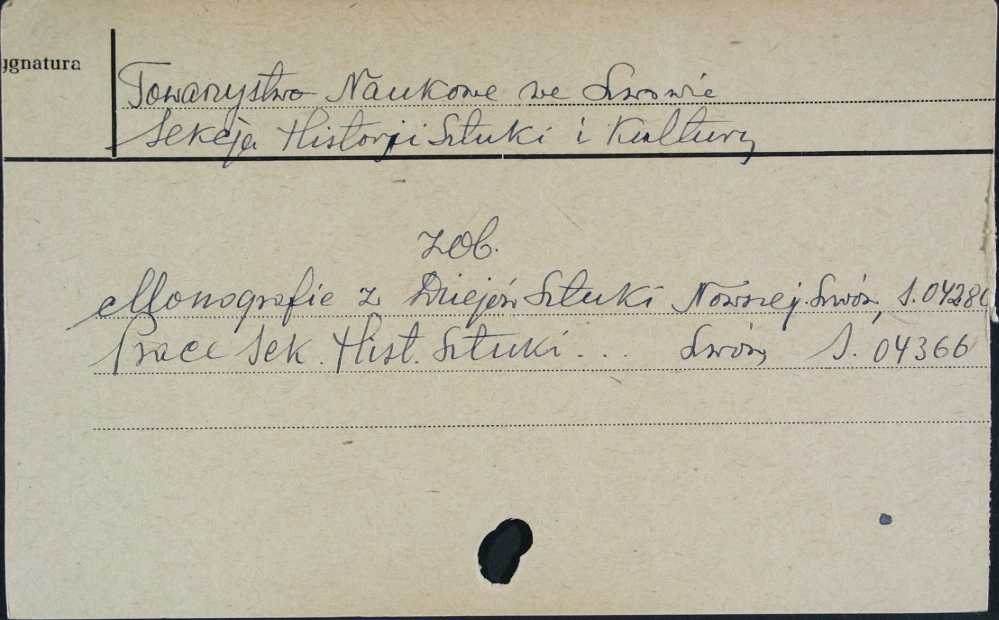 ygnatura
Towarzystwo Naukowe we Lwowie
Sekcja Historji Sztuki i Kultury
zob.
Monografie z Dziejów Sztuki Nowszej. Lwów, S. 04280
Prace Sek. Hist. Sztuki... Lwów, S. 04366